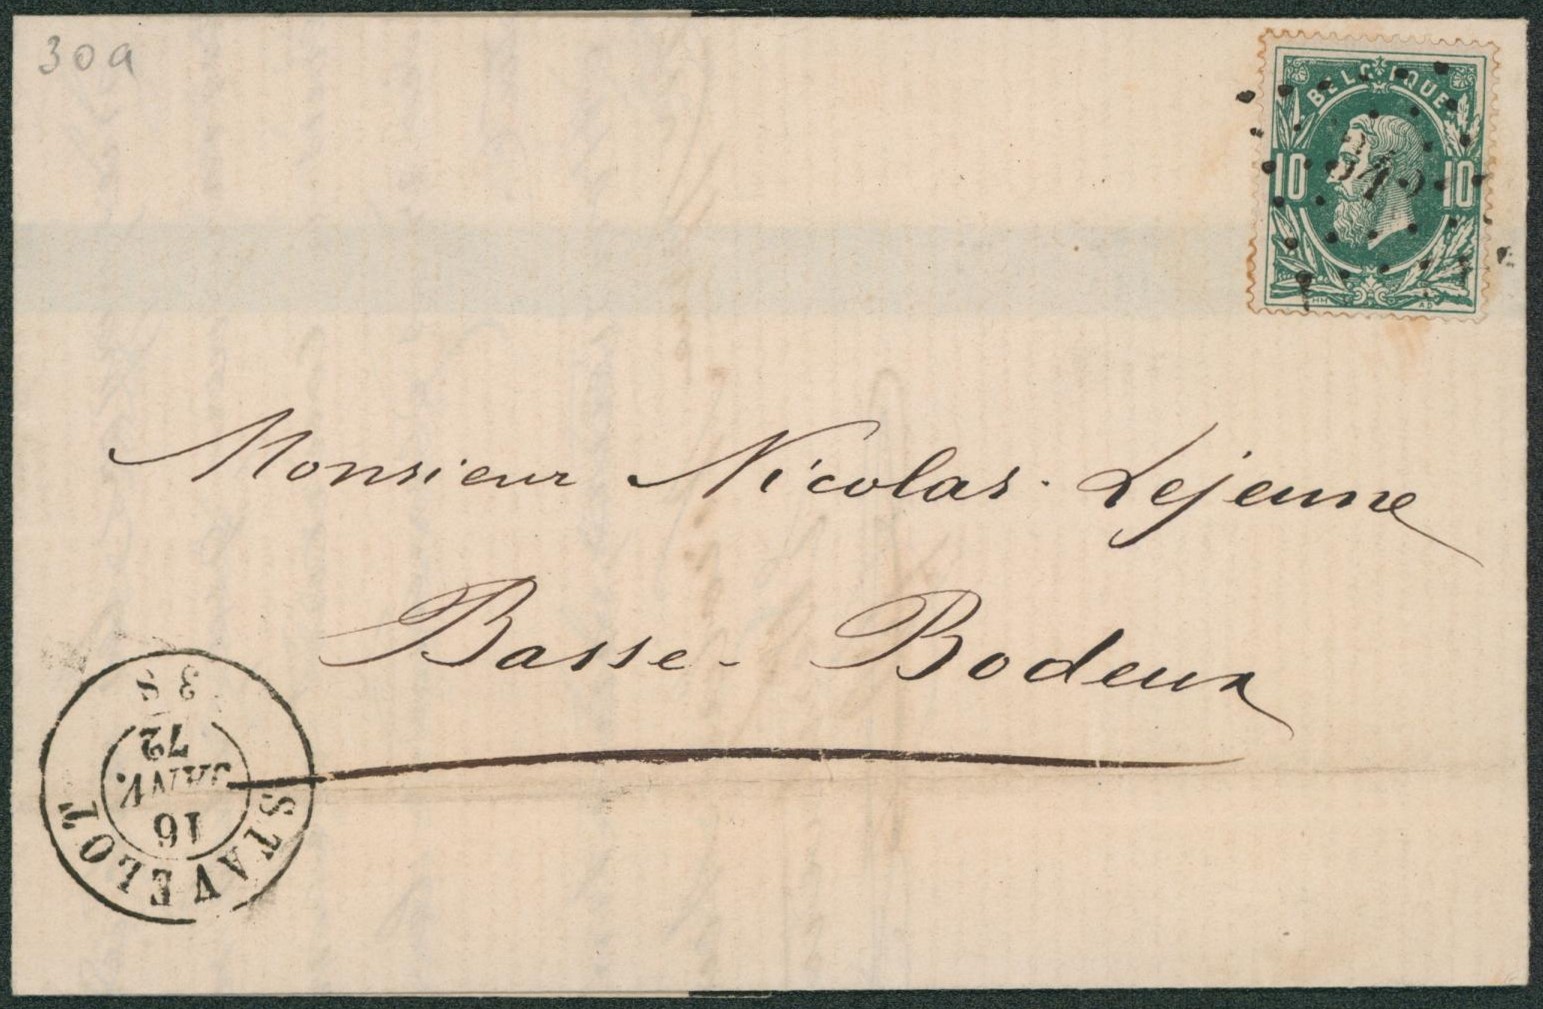 30a
BELGIQUE
10 10
Monsieur Nicolas Lejeune
Basse-Bodeux
STAVELOT
16
JANV.
72